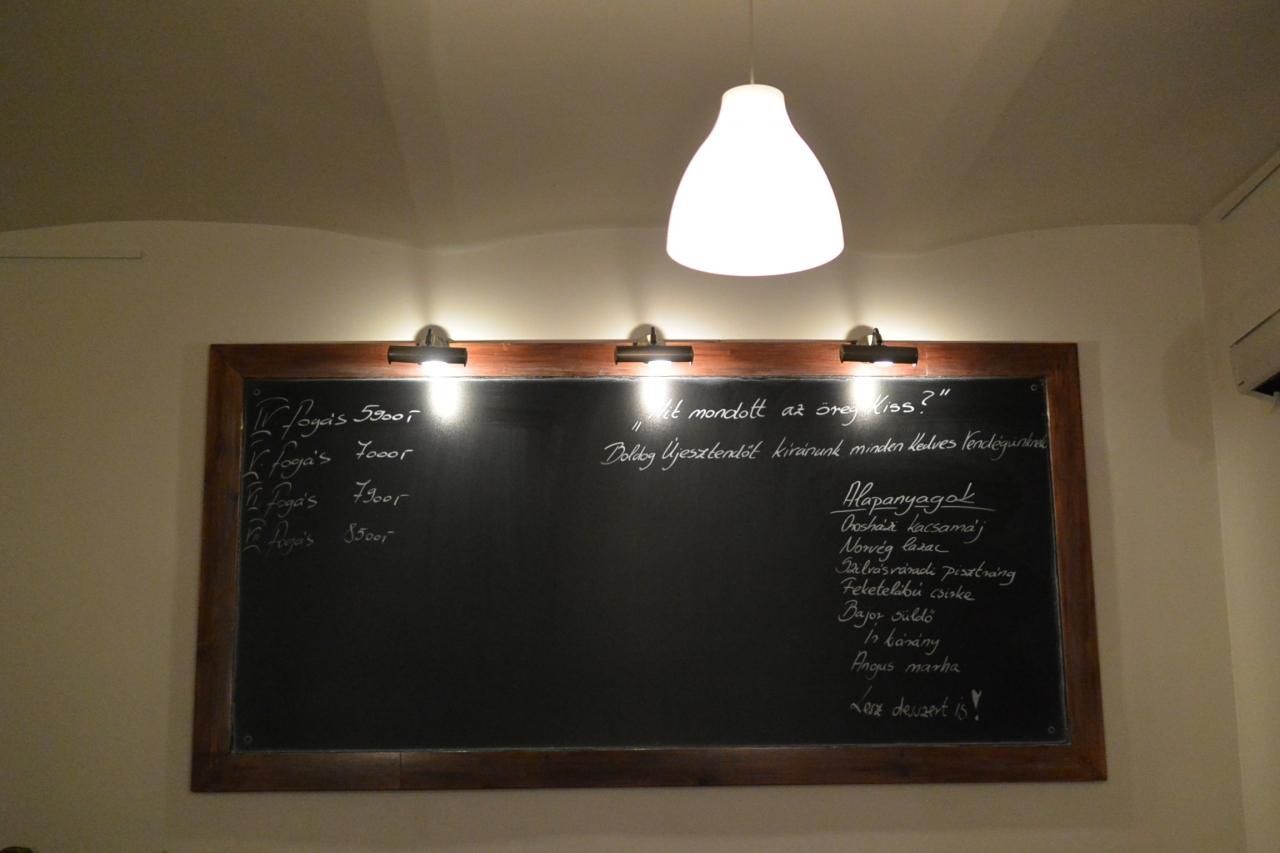 IV. fogás 5900,-
V. fogás 7000,-
VI. fogás 7900,-
VII. fogás 8500,-
„Mit mondott az öreg Kiss?"
Boldog Újesztendőt kívánunk minden Kedves Vendégünknek
Alapanyagok
Orosházi kacsamáj
Norvég lazac
Szilvásváradi pisztráng
Feketelábú csirke
Bajor süldő
Ír bárány
Angus marha
Lesz desszert is!